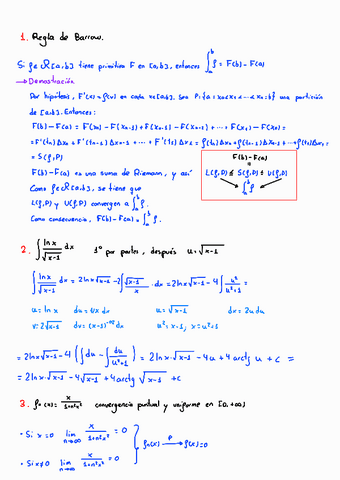 1. Regla de Barrow.
Si f ∈ R[a,b] tiene primitiva F en [a,b], entonces ∫_a^b f = F(b) - F(a)
→ Demostración
Por hipótesis, F'(x) = f(x) en cada x∈[a,b]. Sea P:{a = x₀<x₁< ... <xₙ = b} una partición
de [a,b]. Entonces:
F(b) - F(a) = F(xₙ) - F(xₙ₋₁) + F(xₙ₋₁) - F(xₙ₋₂) + ... + F(x₁) - F(x₀) =
= F'(tₙ) Δxₙ + F'(tₙ₋₁) Δxₙ₋₁ + ... + F'(t₁) Δx₁ = f(tₙ) Δxₙ + f(tₙ₋₁) Δxₙ₋₁ + ... + f(t₁) Δx₁ =
= S(f,P)
F(b) - F(a)
=
F(b) - F(a) es una suma de Riemann, y así
L(f,P) ≤ S(f,P) ≤ U(f,P)
∫_a^b f
Como f ∈ R[a,b], se tiene que
L(f,P) y U(f,P) convergen a ∫_a^b f.
Como consecuencia, F(b) - F(a) = ∫_a^b f
2. ∫ ln x / √(x-1) dx 1º por partes, después u = √(x-1)
∫ ln x / √(x-1) dx = 2 ln x √(x-1) - 2 ∫ √(x-1) / x · dx = 2 ln x √(x-1) - 4 ∫ u² / (u²+1) =
u = ln x du = 1/x dx u = √(x-1) dx = 2u du
v = 2√(x-1) dv = (x-1)^(-1/2) dx u² = x-1; x = u²+1
= 2 ln x √(x-1) - 4 (∫ du - ∫ du / (u²+1)) = 2 ln x √(x-1) - 4u + 4 arctg u + c =
= 2 ln x √(x-1) - 4√(x-1) + 4 arctg √(x-1) + c
3. fₙ(x) = x / (1+n²x²) convergencia puntual y uniforme en [0,+∞)
• Si x = 0 lim n→∞ x / (1+n²x²) = 0
fₙ(x) →^P f(x) = 0
• Si x ≠ 0 lim n→∞ x / (1+n²x²) = 0